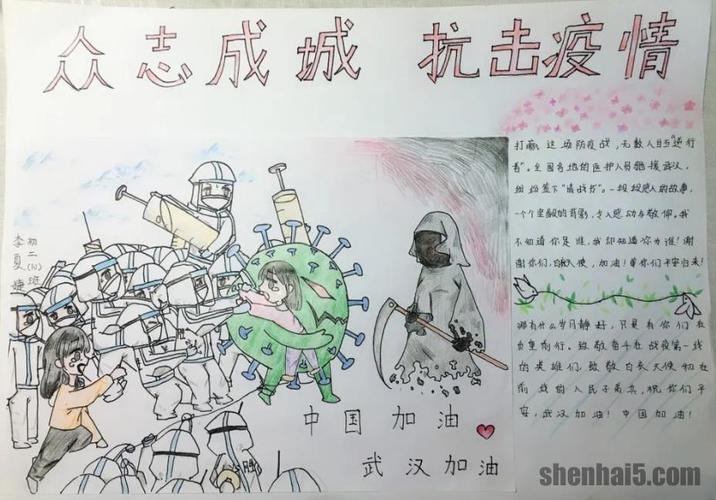 众志成城 抗击疫情
打赢这场防疫战，无数人当"逆行
者"。全国各地的医护人员驰援武汉，
纷纷签下"请战书"。一段段感人的故事，
一个个坚毅的背影，令人感动与敬仰。我
不知道你是谁，我却知道你为谁！谢
谢你们，白衣天使，加油！等你们平安归来！
哪有什么岁月静好，只是有你们在
负重前行。致敬奋斗在战疫第一线
的英雄们，致敬白衣天使和在
前线的人民子弟兵，祝你们平
安，武汉加油！中国加油！
初二(10)班
李夏婕
中国加油
武汉加油
shenhai5.com